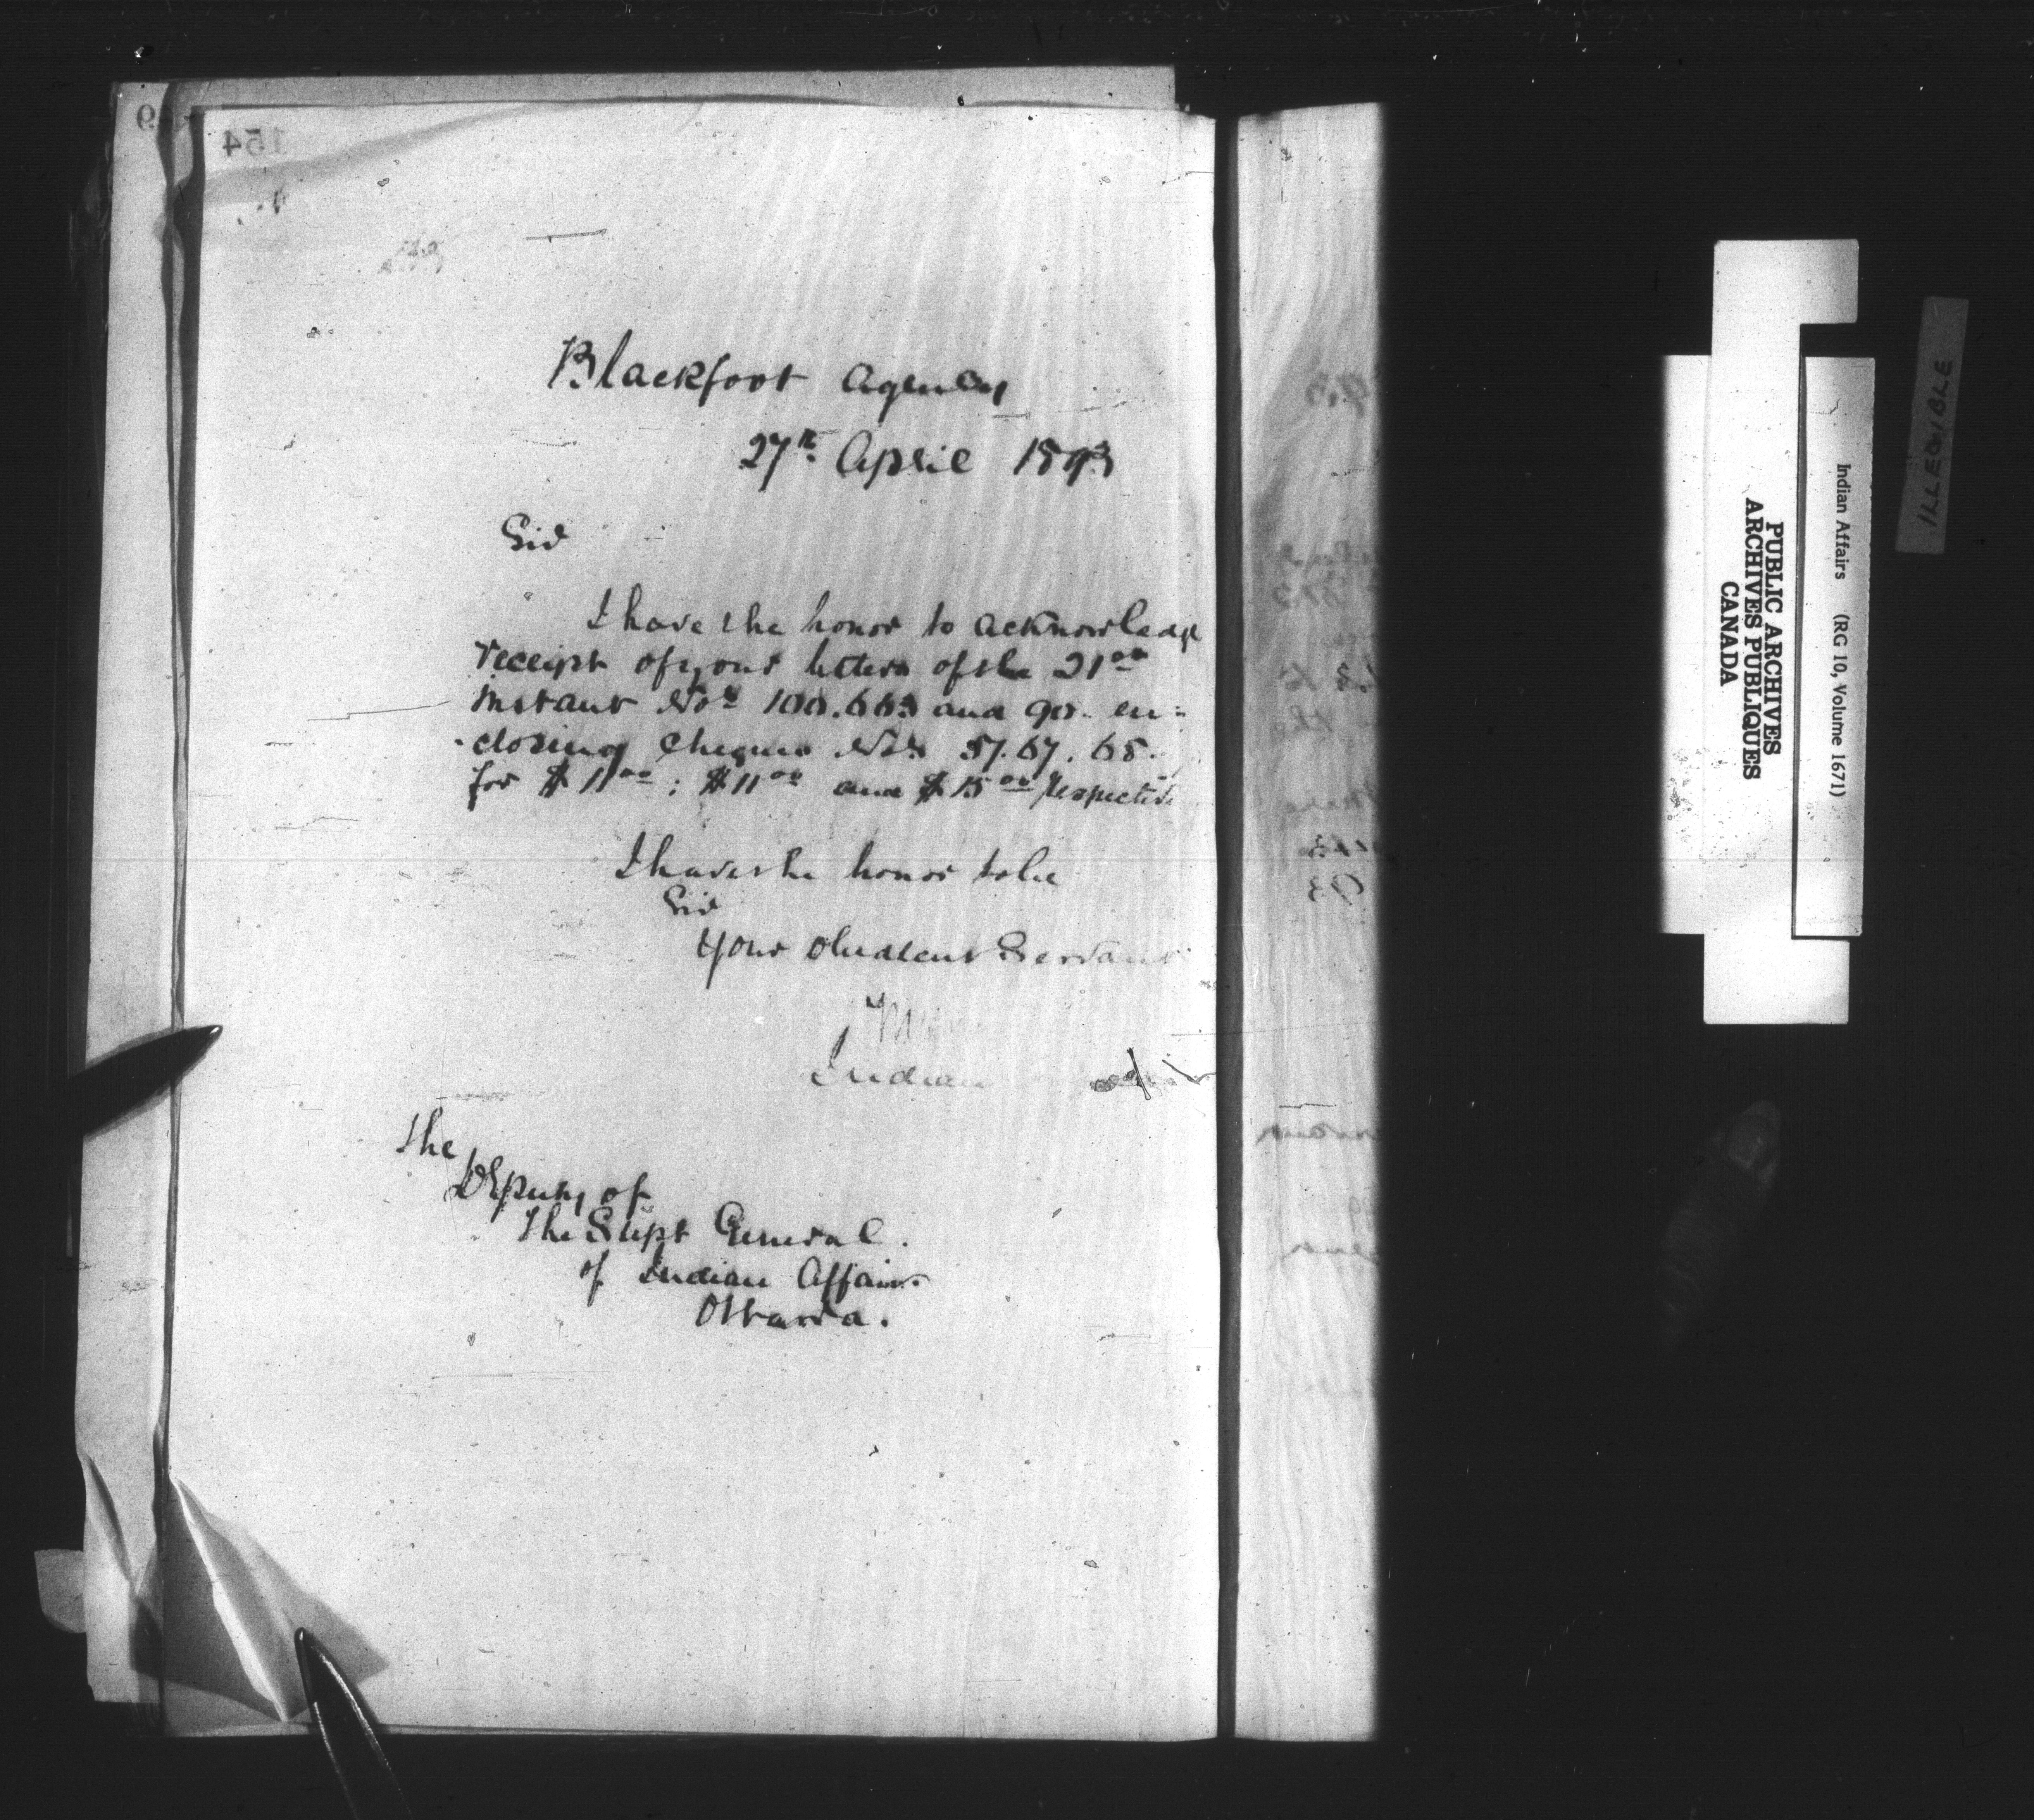 154
Blackfoot Agency
27th April 1893
Sir
I have the honor to acknowledge
receipt of your letters of the 21st
instant Nos 100.663 and 90. en-
closing cheques Nos 57. 67. 68.
for $11.00; $11.00 and $15.00 respectiv
I have the honor to be
Sir
Your obedient Servant
Indian
The
Deputy of
The Supt General.
of Indian Affairs
Ottawa.
PUBLIC ARCHIVES
ARCHIVES PUBLIQUES
CANADA
Indian Affairs (RG 10, Volume 1671)
ILLEGIBLE